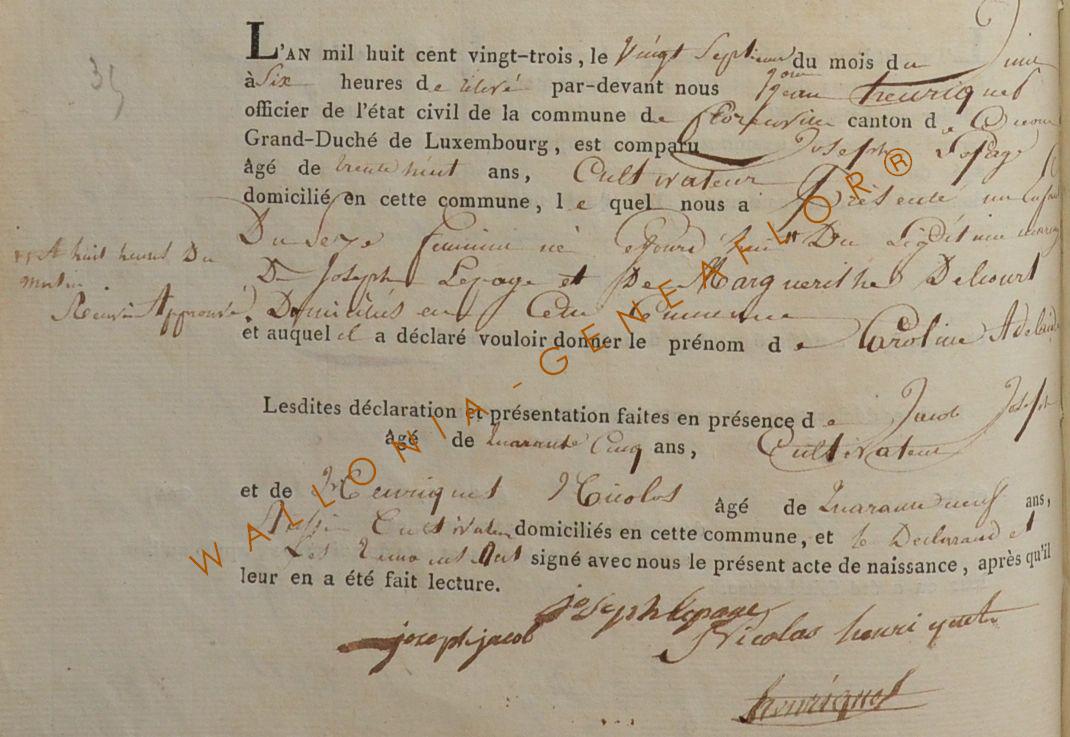 35
L'AN mil huit cent vingt-trois, le vingt Septieme jour du mois du Juin
à Six heures de relevé par-devant nous Jean henriquet
officier de l'état civil de la commune de florenville canton d
Grand-Duché de Luxembourg, est comparu Joseph Lepage
âgé de trente huit ans, Cultivateur
domicilié en cette commune, le quel nous a présenté un Enfant
Du sexe feminin né Du Légitime
** A huit heures Du
matin
De Joseph Lepage et De Marguerithe Delcourt
Renvoi Approuvé. Domiciliés en Cette Commune
et auquel il a déclaré vouloir donner le prénom de Caroline Adelaide
Lesdites déclaration et présentation faites en présence de Jacob Joseph
âgé de quarante Cinq ans, Cultivateur
et de Henriquet Nicolas âgé de quarante neuf ans,
Aussi Cultivateur domiciliés en cette commune, et le Declarand et
Les temoins Ont signé avec nous le présent acte de naissance, après qu'il
leur en a été fait lecture.
joseph lepage
joseph jacob Nicolas henriquet
henriquet
WALLONIA-GENEAFLOR®